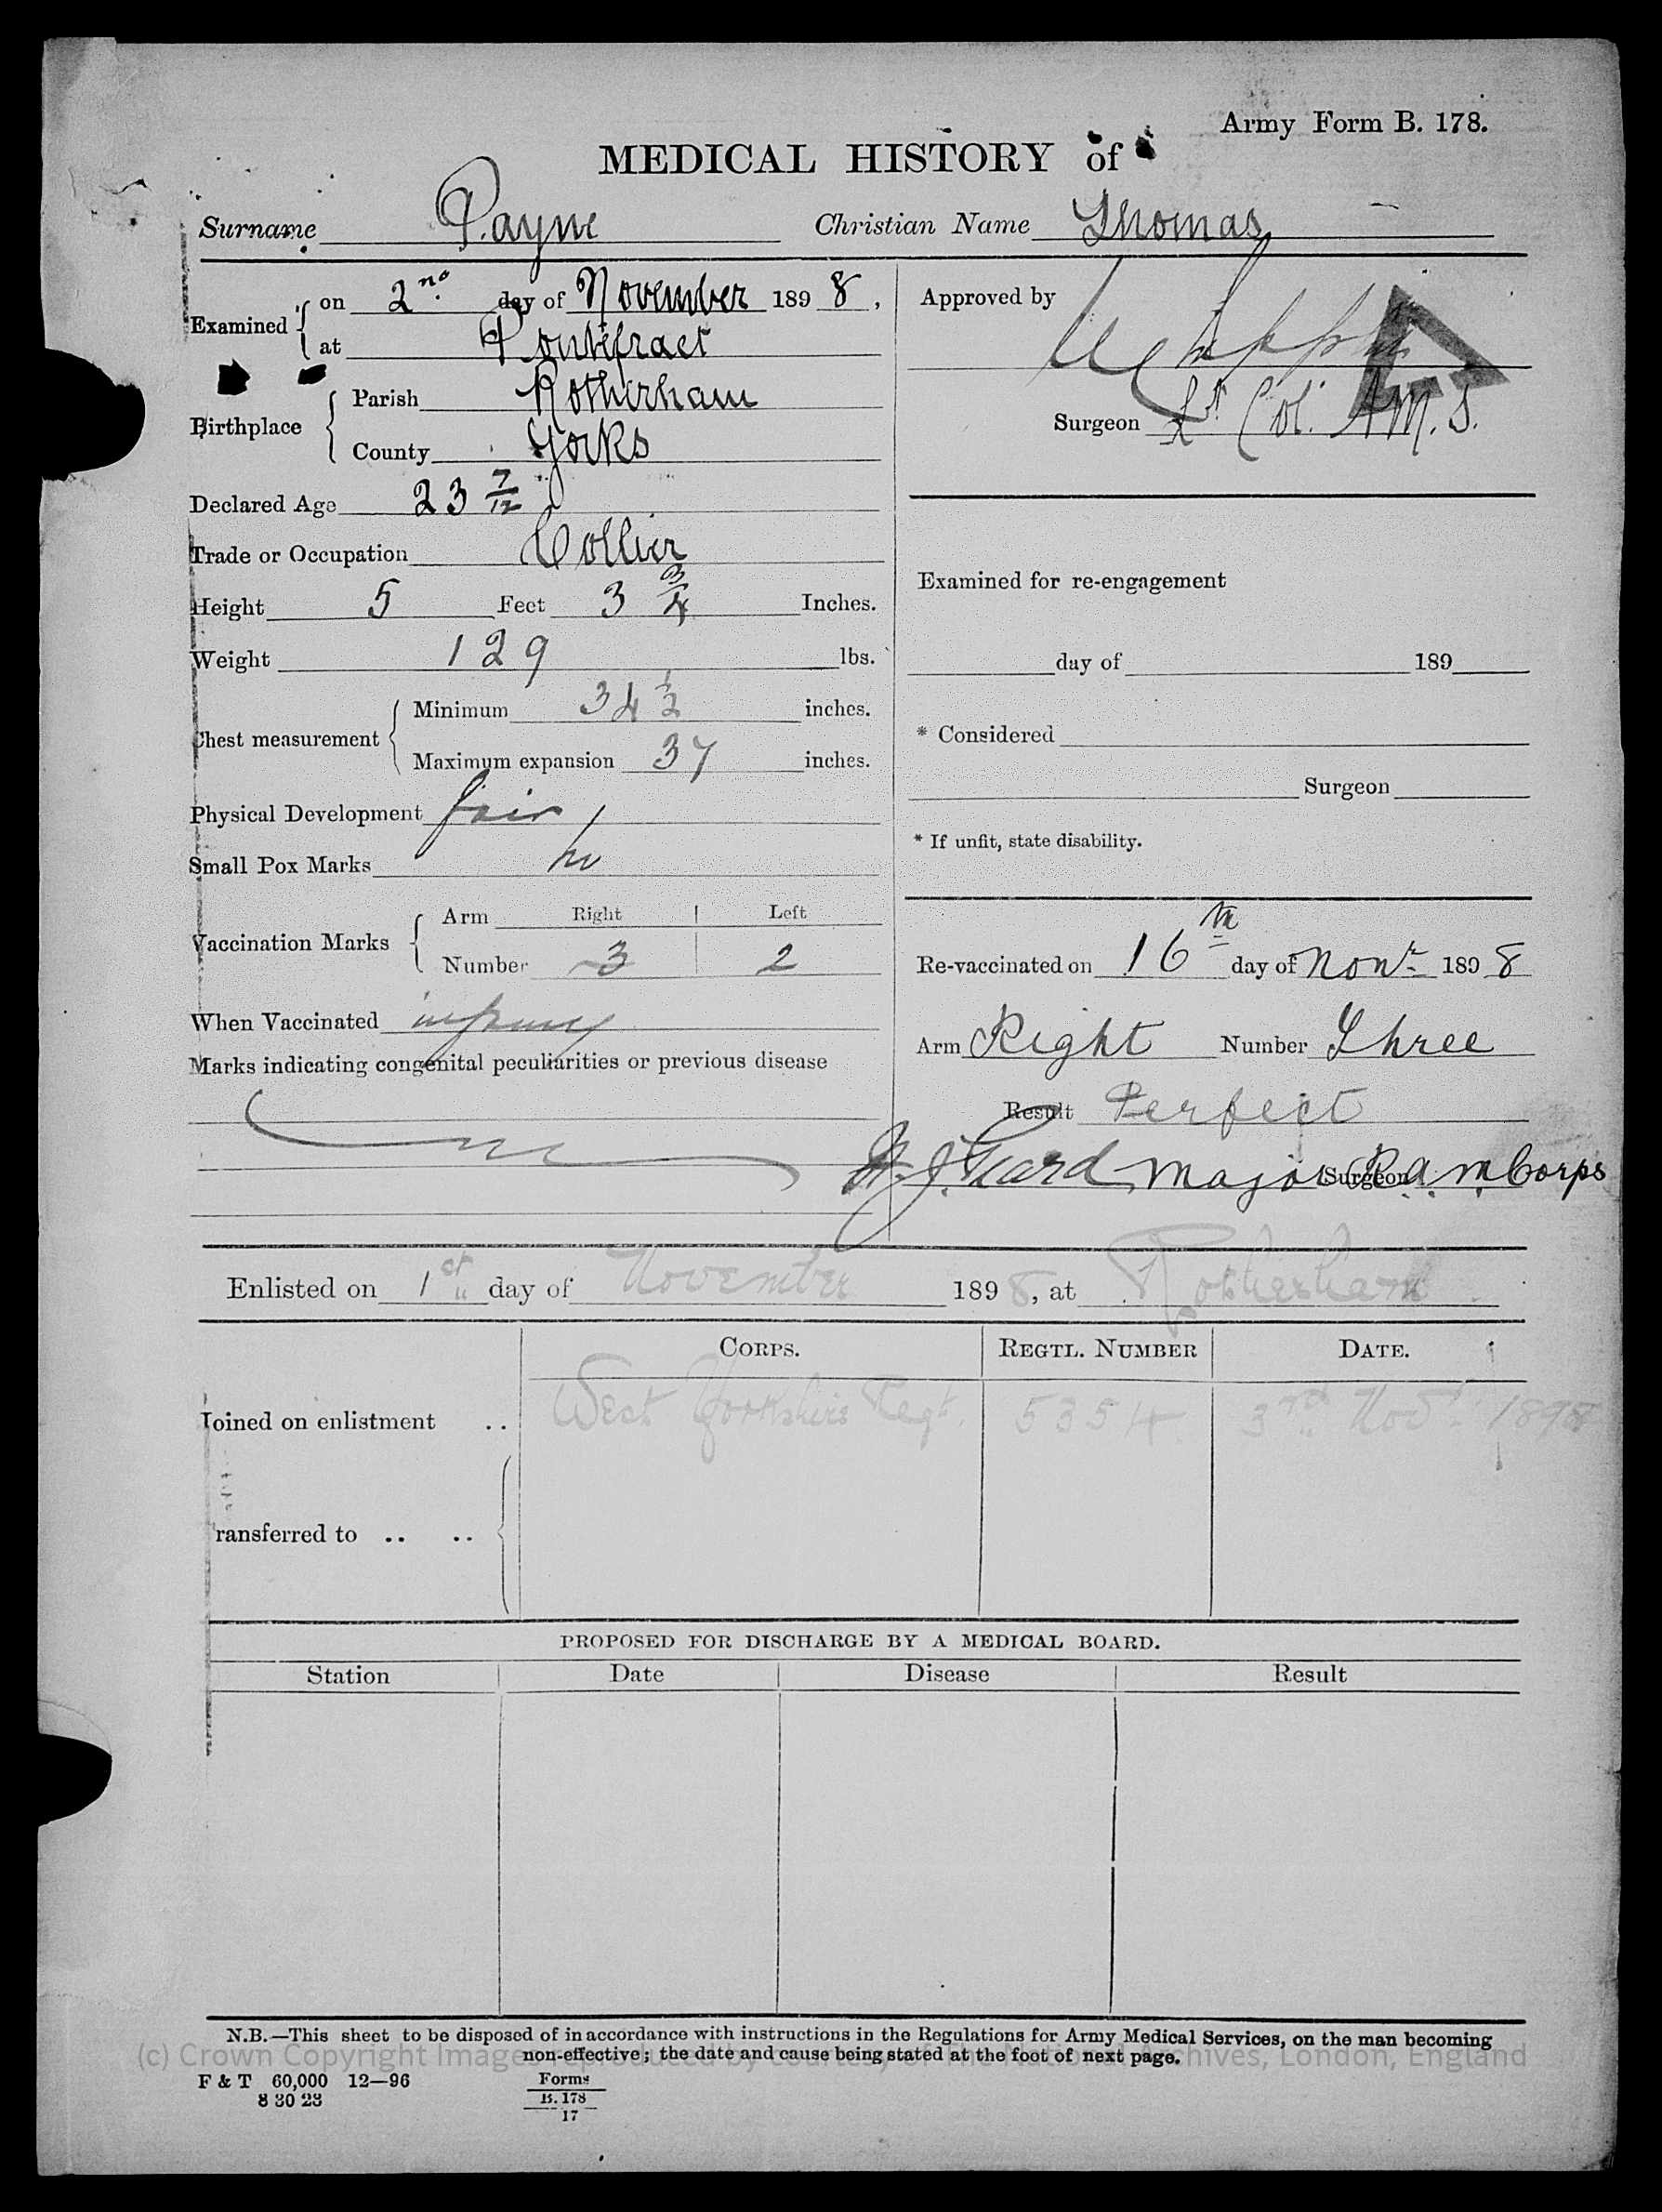 Army Form B. 178.
MEDICAL HISTORY of
Surname Payne Christian Name Thomas
Examined on 2nd day of November 1898,
at Pontefract
Birthplace Parish Rotherham
County Yorks
Declared Age 23 7/12
Trade or Occupation Collier
Height 5 Feet 3 3/4 Inches.
Weight 129 lbs.
Chest measurement Minimum 34 1/2 inches.
Maximum expansion 37 inches.
Physical Development fair
Small Pox Marks no
Vaccination Marks Arm Right Left
Number 3 2
When Vaccinated infancy
Marks indicating congenital peculiarities or previous disease
Approved by
Surgeon Lt Col. A.M.S.
Examined for re-engagement
day of 189
* Considered
Surgeon
* If unfit, state disability.
Re-vaccinated on 16th day of Novr 1898
Arm Right Number Three
Result Perfect
Major Surgeon R.A.M. Corps
Enlisted on 1st day of November 1898, at Rotherham
CORPS. REGTL. NUMBER DATE.
Joined on enlistment .. West Yorkshire Regt. 5354 3rd Novr 1898
ransferred to .. ..
PROPOSED FOR DISCHARGE BY A MEDICAL BOARD.
Station Date Disease Result
N.B.—This sheet to be disposed of in accordance with instructions in the Regulations for Army Medical Services, on the man becoming
non-effective; the date and cause being stated at the foot of next page.
(c) Crown Copyright Images reproduced by courtesy of The National Archives, London, England
F & T 60,000 12—96
8 30 23
Forms
B. 178
17